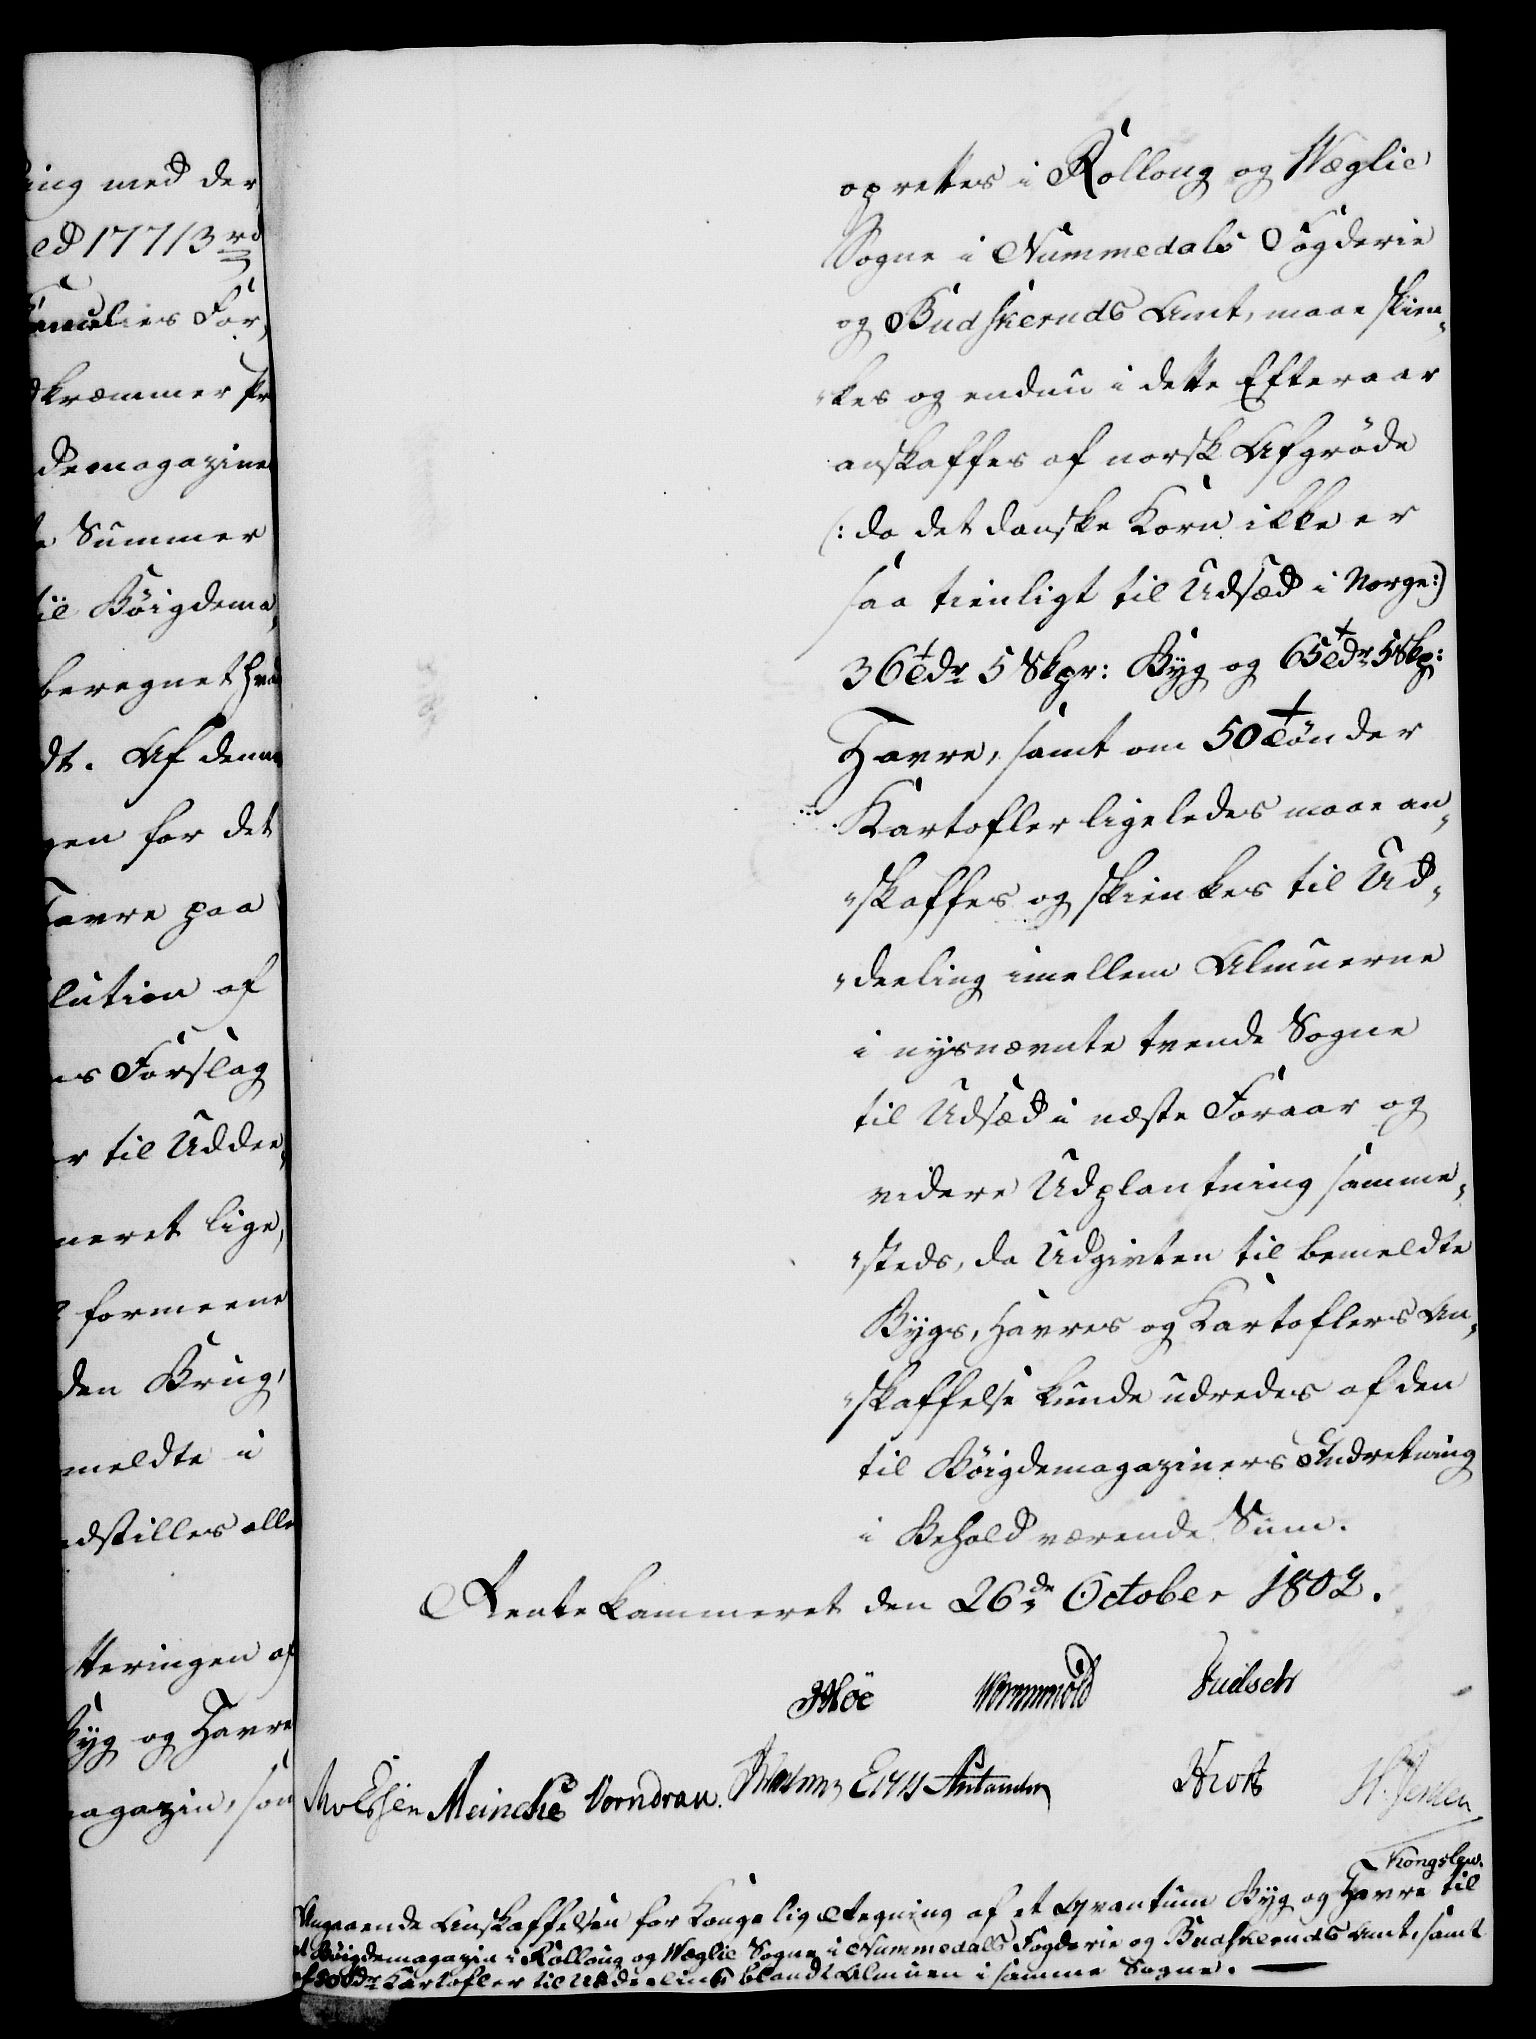 ing med der
ed 17713 rd
Familiers For,
kræmmer
demagazine
Summer
til Böigdema,
beregnet
dt. Af denne
gen for det
Havre paa
lution af
es Forslag
r til Uddee,
neret lige,
formeene
den Brug,
meldte i
dstilles alle
tteringen af
Byg og Havre
magazin, som
oprettes i Rolloug og Wæglie
Sogne i Nummedals Fogderie
og Budskeruds Amt, maae skien„
„kes og endnu i dette Efteraar
anskaffes af norsk Afgröde
(: da det danske Korn ikke er
saa tienligt til Udsæd i Norge:)
36 tdr 5 Skpr: Byg og 65 tdr 5 Skp:
Havre, samt om 50 tönder
Kartofler ligeledes maae an„
„skaffes og skienkes til Ud„
„deeling imellem Almuerne
i nysnævnte tvende Sogne
til Udsæd i næste Foraar og
videre Udplantning samme„
„steds, da Udgivten til bemeldte
Bygs, Havres og Kartoflers An„
„skaffelse kunde udredes af den
til Böigdemagaziners Indretning
i Behold værende Sum.
Rentekammeret den 26de October 1802.
Wormskiold
Meincke Vorndran.
Krog
H. Jensen
Kongslew.
Angaaende Anskaffelsen for Kongelig Regning af et Qvantum Byg og Havre til
et Böigdemagazin i Rolloug og Wæglie Sogne i Nummedals Fogderie og Budskeruds Amt, samt
af 50 tdr Kartofler til Uddeeling blandt Almuen i samme Sogne.